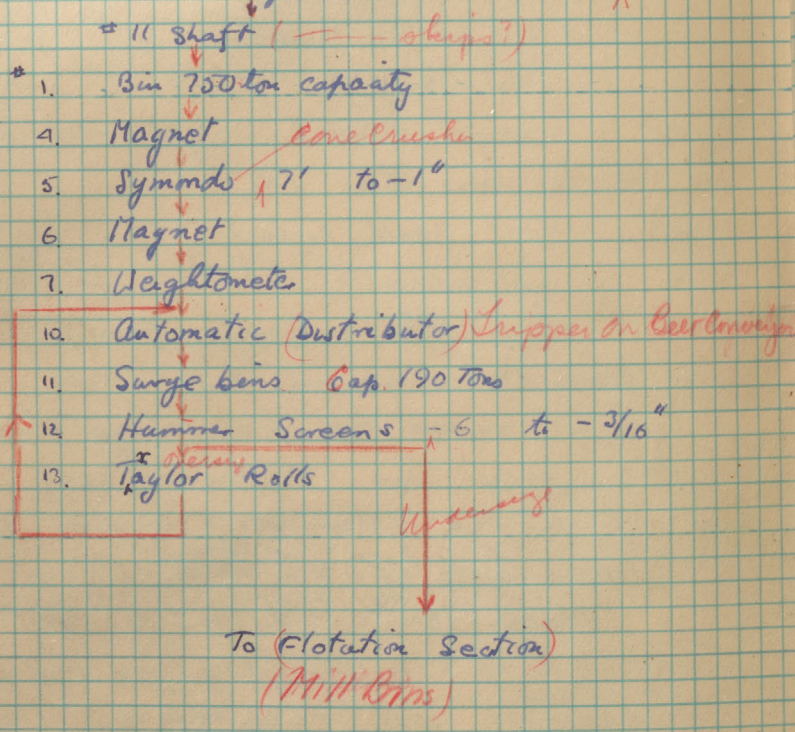 # 11 Shaft ( skips?)
# 1. Bin 750 ton capacity
4. Magnet Cone Crusher
5. Symonds 1 7' to -1"
6. Magnet
7. Weightometer
10. Automatic (Distributor) Tripper on Belt Conveyor
11. Surge bins Cap. 190 Tons
12. Hummer Screens - 6 to - 3/16"
13. Taylor Rolls
Undersize
To (Flotation Section)
(Mill Bins)